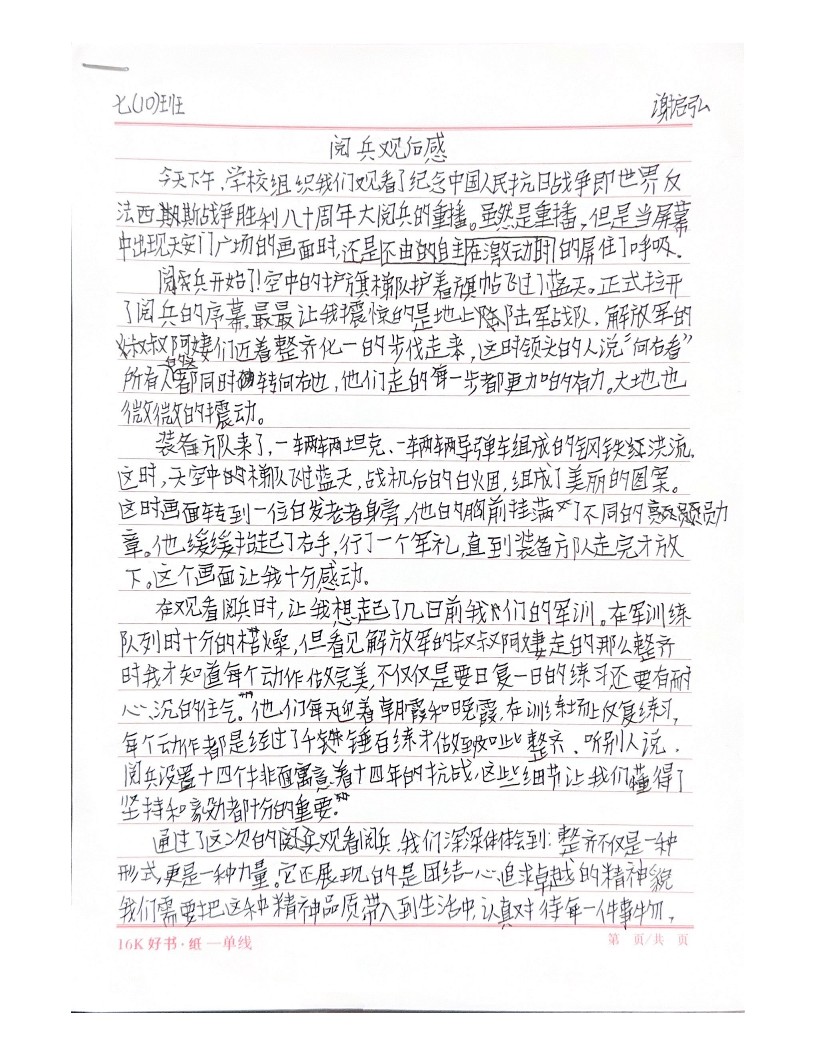 七(10)班 谢启弘
阅兵观后感
今天下午,学校组织我们观看了纪念中国人民抗日战争即世界反
法西斯战争胜利八十周年大阅兵的重播。虽然是重播,但是当屏幕
中出现天安门广场的画面时,还是不由的自主在激动时的屏住了呼吸.
阅兵开始了!空中的护旗梯队护着旗帜飞过了蓝天。正式拉开
了阅兵的序幕.最最让我震惊的是地上陆军战队.解放军的
叔叔阿姨们迈着整齐化一的步伐走来,这时领头的人说“向右看”
所有人都同时转向右边,他们走的每一步都更加的有力。大地也
微微的震动。
装备方队来了,一辆辆坦克、一辆辆导弹车组成的钢铁红洪流.
这时,天空中的梯队飞过蓝天,战机后的白火团,组成了美丽的图案。
这时画面转到一位白发老者身旁,他的胸前挂满了不同的勋
章。他缓缓抬起了右手,行了一个军礼,直到装备方队走完才放
下。这个画面让我十分感动.
在观看阅兵时,让我想起了几日前我们的军训。在军训练
队列时十分的枯燥,但看见解放军的叔叔阿姨走的那么整齐
时我才知道每个动作做完美,不仅仅是要日复一日的练习还要有耐
心、沉的住气。他们每天迎着朝霞和晚霞,在训练场上反复练习,
每个动作都是经过了千锤百练才做到如此整齐、听别人说,
阅兵设置十四个牛排面寓意着十四年的抗战,这些细节让我们懂得了
坚持和毅力都十分的重要.
通过了这次的阅兵观看阅兵,我们深深体会到:整齐不仅是一种
形式,更是一种力量。它还展现的是团结一心追求卓越的精神貌
我们需要把这种精神品质带入到生活中,认真对待每一件事物,
16K 好书·纸—单线 第 页/共 页